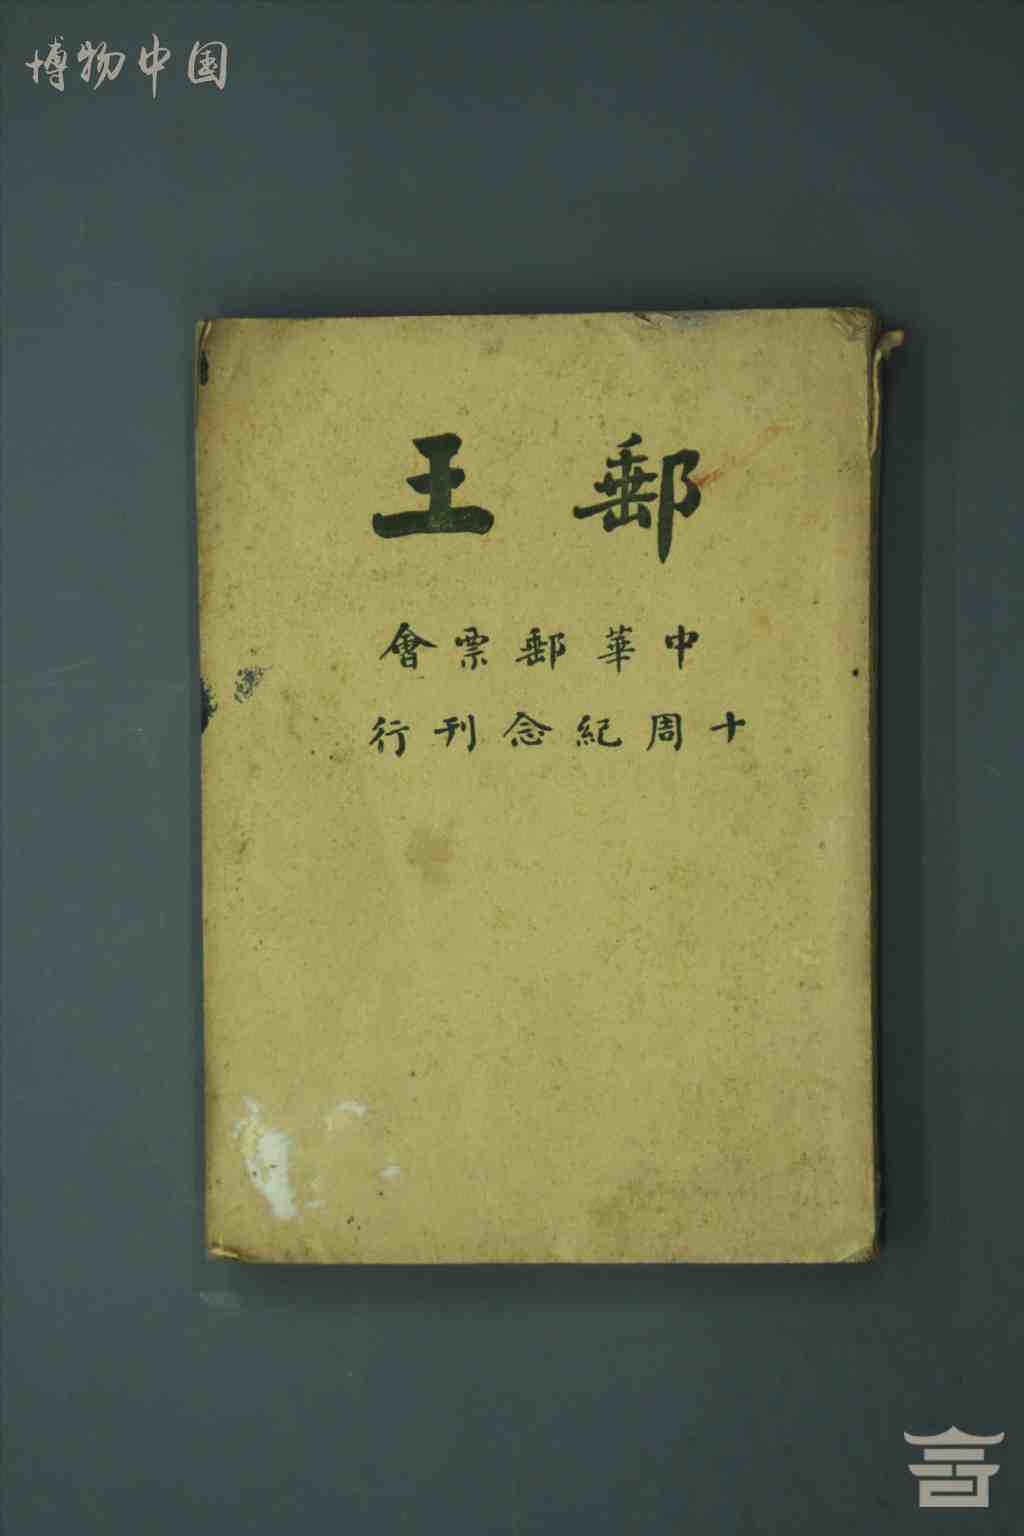 博物中国
郵王
中華郵票會
十周紀念刊行